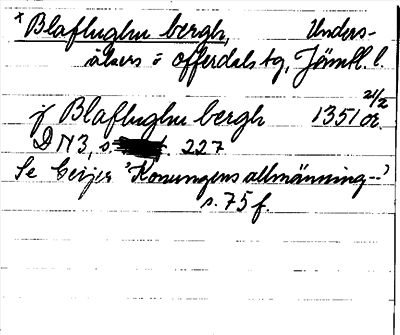 * Blaflughu bergh, Unders-
åkers o offerdals tg, Jämtl. l.
j Blaflughu bergh 1351 2/2 or.
DN3, s. 227
Se Beijer 'Konungens allmänning--'
s. 75 f.